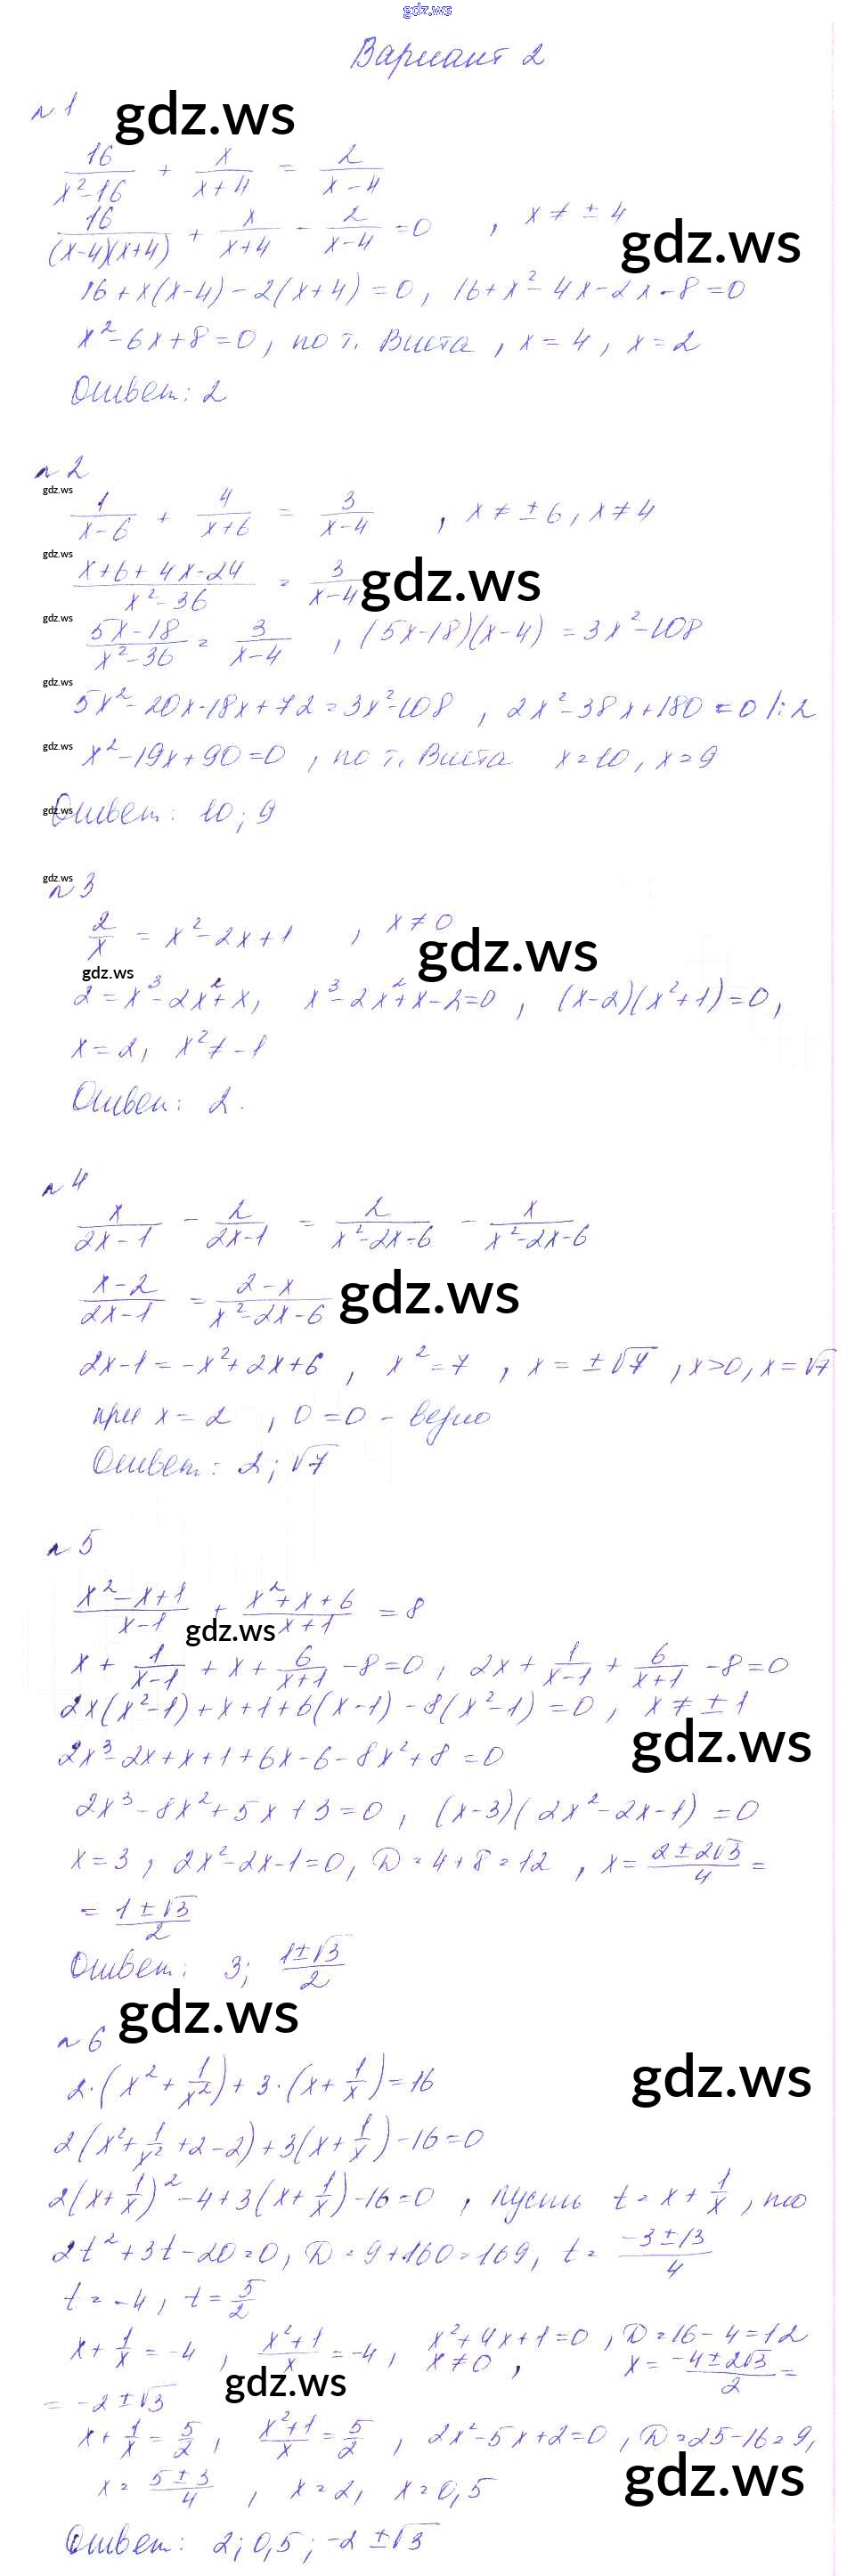 gdz.ws
Вариант 2
№1
gdz.ws
16/(x²-16) + x/(x+4) = 2/(x-4)
16/((x-4)(x+4)) + x/(x+4) - 2/(x-4) = 0 , x ≠ ±4
gdz.ws
16+x(x-4)-2(x+4)=0, 16+x²-4x-2x-8=0
x²-6x+8=0, по т. Виета, x=4, x=2
Ответ: 2
№2
gdz.ws
1/(x-6) + 4/(x+6) = 3/(x-4) , x ≠ ±6, x ≠ 4
gdz.ws
(x+6+4x-24)/(x²-36) = 3/(x-4)
gdz.ws
gdz.ws
(5x-18)/(x²-36) = 3/(x-4) , (5x-18)(x-4) = 3x²-108
gdz.ws
5x²-20x-18x+72=3x²-108 , 2x²-38x+180=0 /:2
gdz.ws
x²-19x+90=0 , по т. Виета x=10, x=9
gdz.ws
Ответ: 10; 9
gdz.ws
№3
2/x = x²-2x+1 , x≠0
gdz.ws
gdz.ws
2=x³-2x²+x, x³-2x²+x-2=0 , (x-2)(x²+1)=0,
x=2, x²≠-1
Ответ: 2.
№4
x/(2x-1) - 2/(2x-1) = 2/(x²-2x-6) - x/(x²-2x-6)
(x-2)/(2x-1) = (2-x)/(x²-2x-6)
gdz.ws
2x-1=-x²+2x+6 , x²=7 , x=±√7 , x>0, x=√7
при x=2 , 0=0 - верно
Ответ: 2; √7
№5
(x²-x+1)/(x-1) + (x²+x+6)/(x+1) = 8
gdz.ws
x + 1/(x-1) + x + 6/(x+1) - 8=0, 2x + 1/(x-1) + 6/(x+1) - 8=0
2x(x²-1)+x+1+6(x-1)-8(x²-1)=0, x≠±1
gdz.ws
2x³-2x+x+1+6x-6-8x²+8=0
2x³-8x²+5x+3=0, (x-3)(2x²-2x-1)=0
x=3, 2x²-2x-1=0, D=4+8=12 , x=(2±2√3)/4 =
= (1±√3)/2
Ответ: 3; (1±√3)/2
gdz.ws
№6
gdz.ws
2·(x²+1/x²)+3·(x+1/x)=16
2(x²+1/x²+2-2)+3(x+1/x)-16=0
2(x+1/x)²-4+3(x+1/x)-16=0 , пусть t=x+1/x, то
2t²+3t-20=0, D=9+160=169, t=(-3±13)/4
t=-4, t=5/2
x+1/x=-4 , (x²+1)/x=-4, x²+4x+1=0, D=16-4=12
x≠0 , x=(-4±2√3)/2 =
gdz.ws
= -2±√3
x+1/x=5/2, (x²+1)/x=5/2 , 2x²-5x+2=0, D=25-16=9,
gdz.ws
x=(5±3)/4 , x=2, x=0,5
Ответ: 2; 0,5; -2±√3